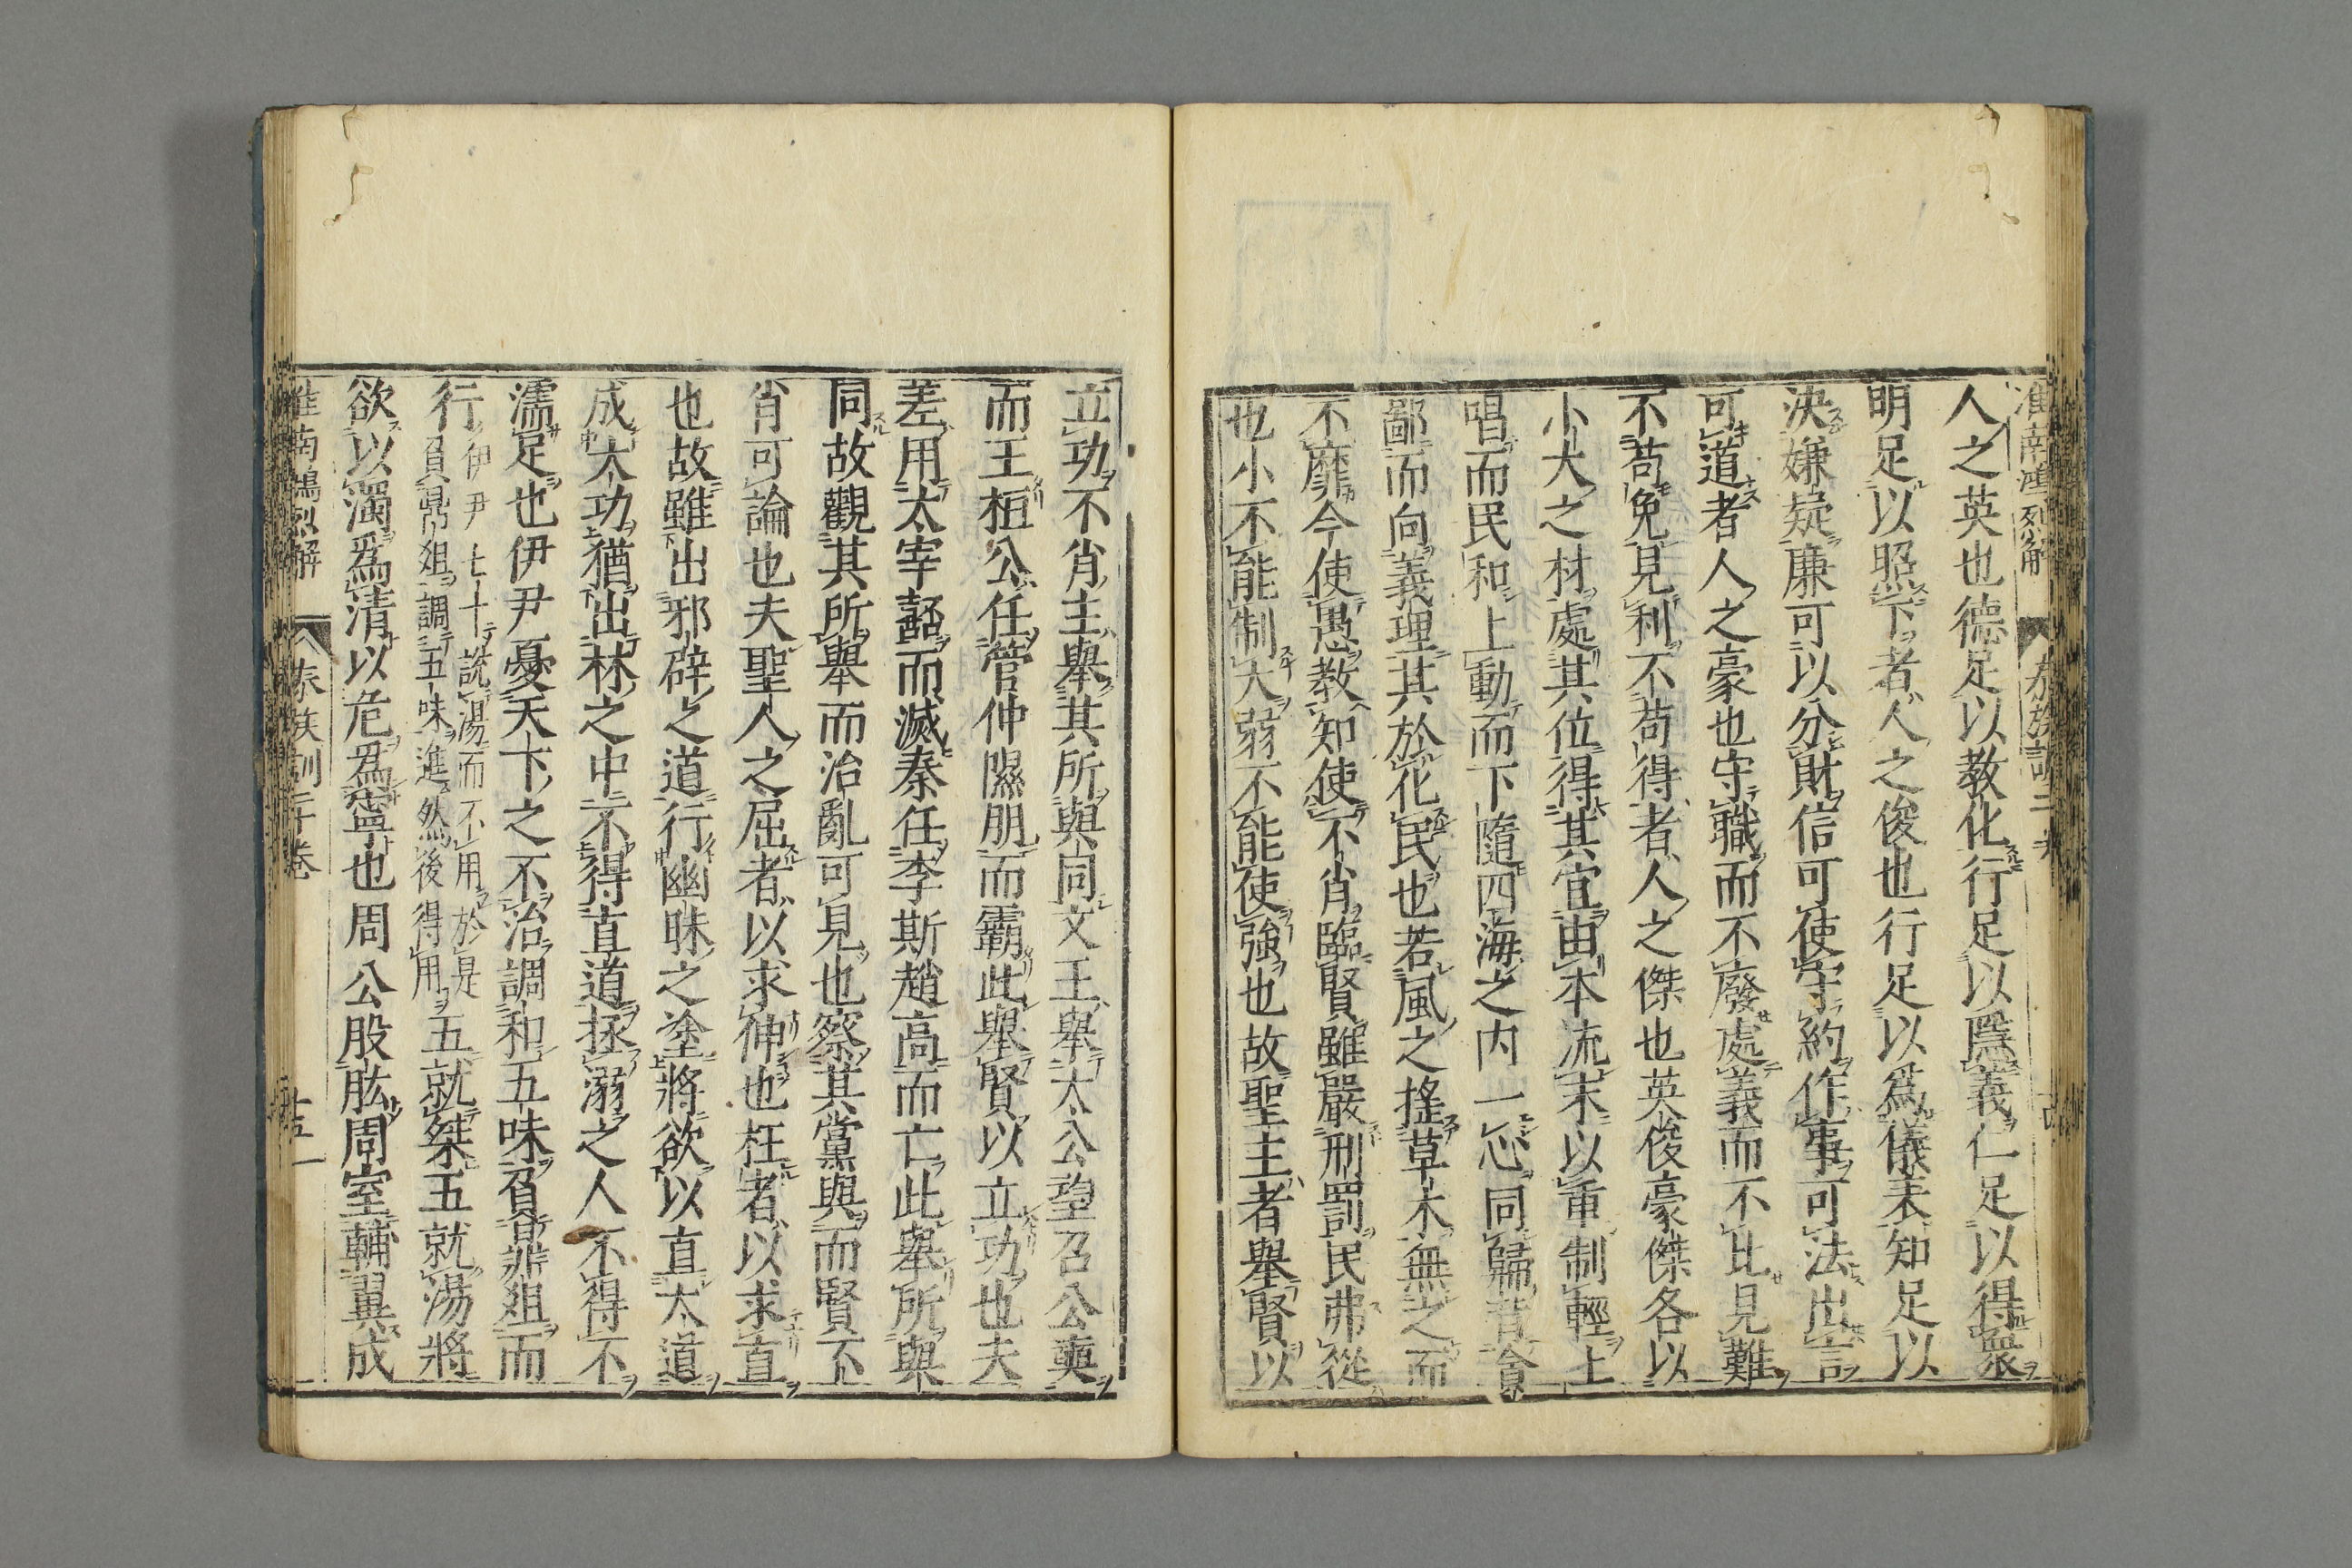 淮南鴻烈解 泰族訓二十卷
人之英也德足以教化行足以隱義仁足以得衆
明足以照下者人之俊也行足以爲儀表知足以
決嫌疑廉可以分財信可使守約作事可法出言
可道者人之豪也守職而不廢處義而不比見難
不苟免見利不苟得者人之傑也英俊豪傑各以
小大之材處其位得其宜由本流末以重制輕上
唱而民和上動而下隨四海之内一心同歸背貪
鄙而向義理其於化民也若風之搖草木無之而
不靡今使愚教知使不肖臨賢雖嚴刑罰民弗從
也小不能制大弱不能使強也故聖主者舉賢以
立功不肖主舉其所與同文王舉太公望召公奭
而王桓公任管仲隰朋而霸此舉賢以立功也夫
差用太宰嚭而滅秦任李斯趙高而亡此舉所與
同故觀其所舉而治亂可見也察其黨與而賢不
肖可論也夫聖人之屈者以求伸也枉者以求直
也故雖出邪辟之道行幽昧之塗將欲以直大道
成大功猶出林之中不得直道拯溺之人不得不
濡足也伊尹憂天下之不治調和五味負鼎俎而
行伊尹七十說湯而不用於是
負鼎俎調五味進然後得用五就桀五就湯將
欲以濁爲清以危爲寧也周公股肱周室輔翼成
淮南鴻烈解 泰族訓二十卷 十五